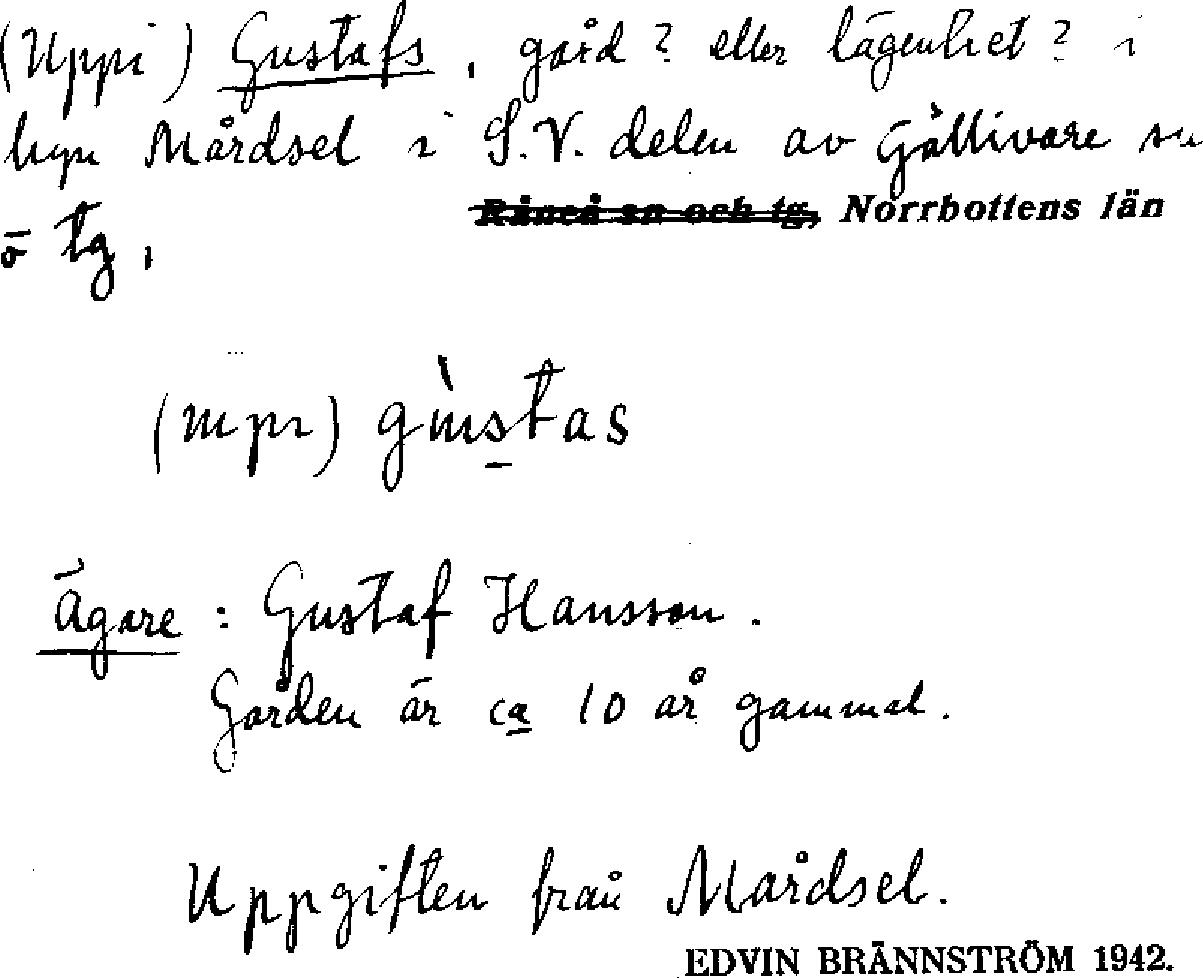 (Uppi) Gustafs, gård? eller lägenhet? i
byn Mårdsel i S.V. delen av Gällivare sn
Råneå sn och tg, Norrbottens län
o tg,
(mpı) gùstas
Ägare: Gustaf Hansson.
Gården är ca 10 år gammal.
Uppgiften från Mårdsel.
EDVIN BRÄNNSTRÖM 1942.